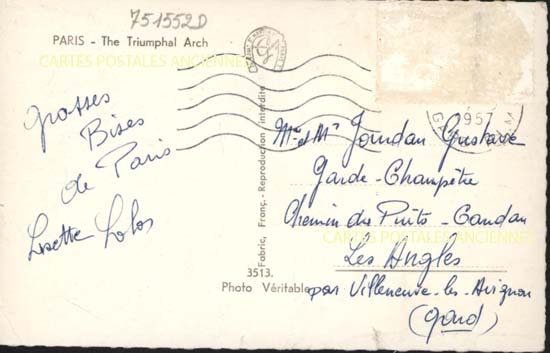 751552D
PARIS - The Triumphal Arch
CARTES POSTALES ANCIENNES
Grosses
Bises
de Paris
Lisette Lolos
Fabric. Franç. - Reproduction interdite
3513.
Photo Véritable
1957
Mme et Mr Jourdan Gustave
Garde-Champêtre
Chemin du Puits-Gandau
CARTES POSTALES ANCIENNES
Les Angles
par Villeneuve-les-Avignon
(Gard)